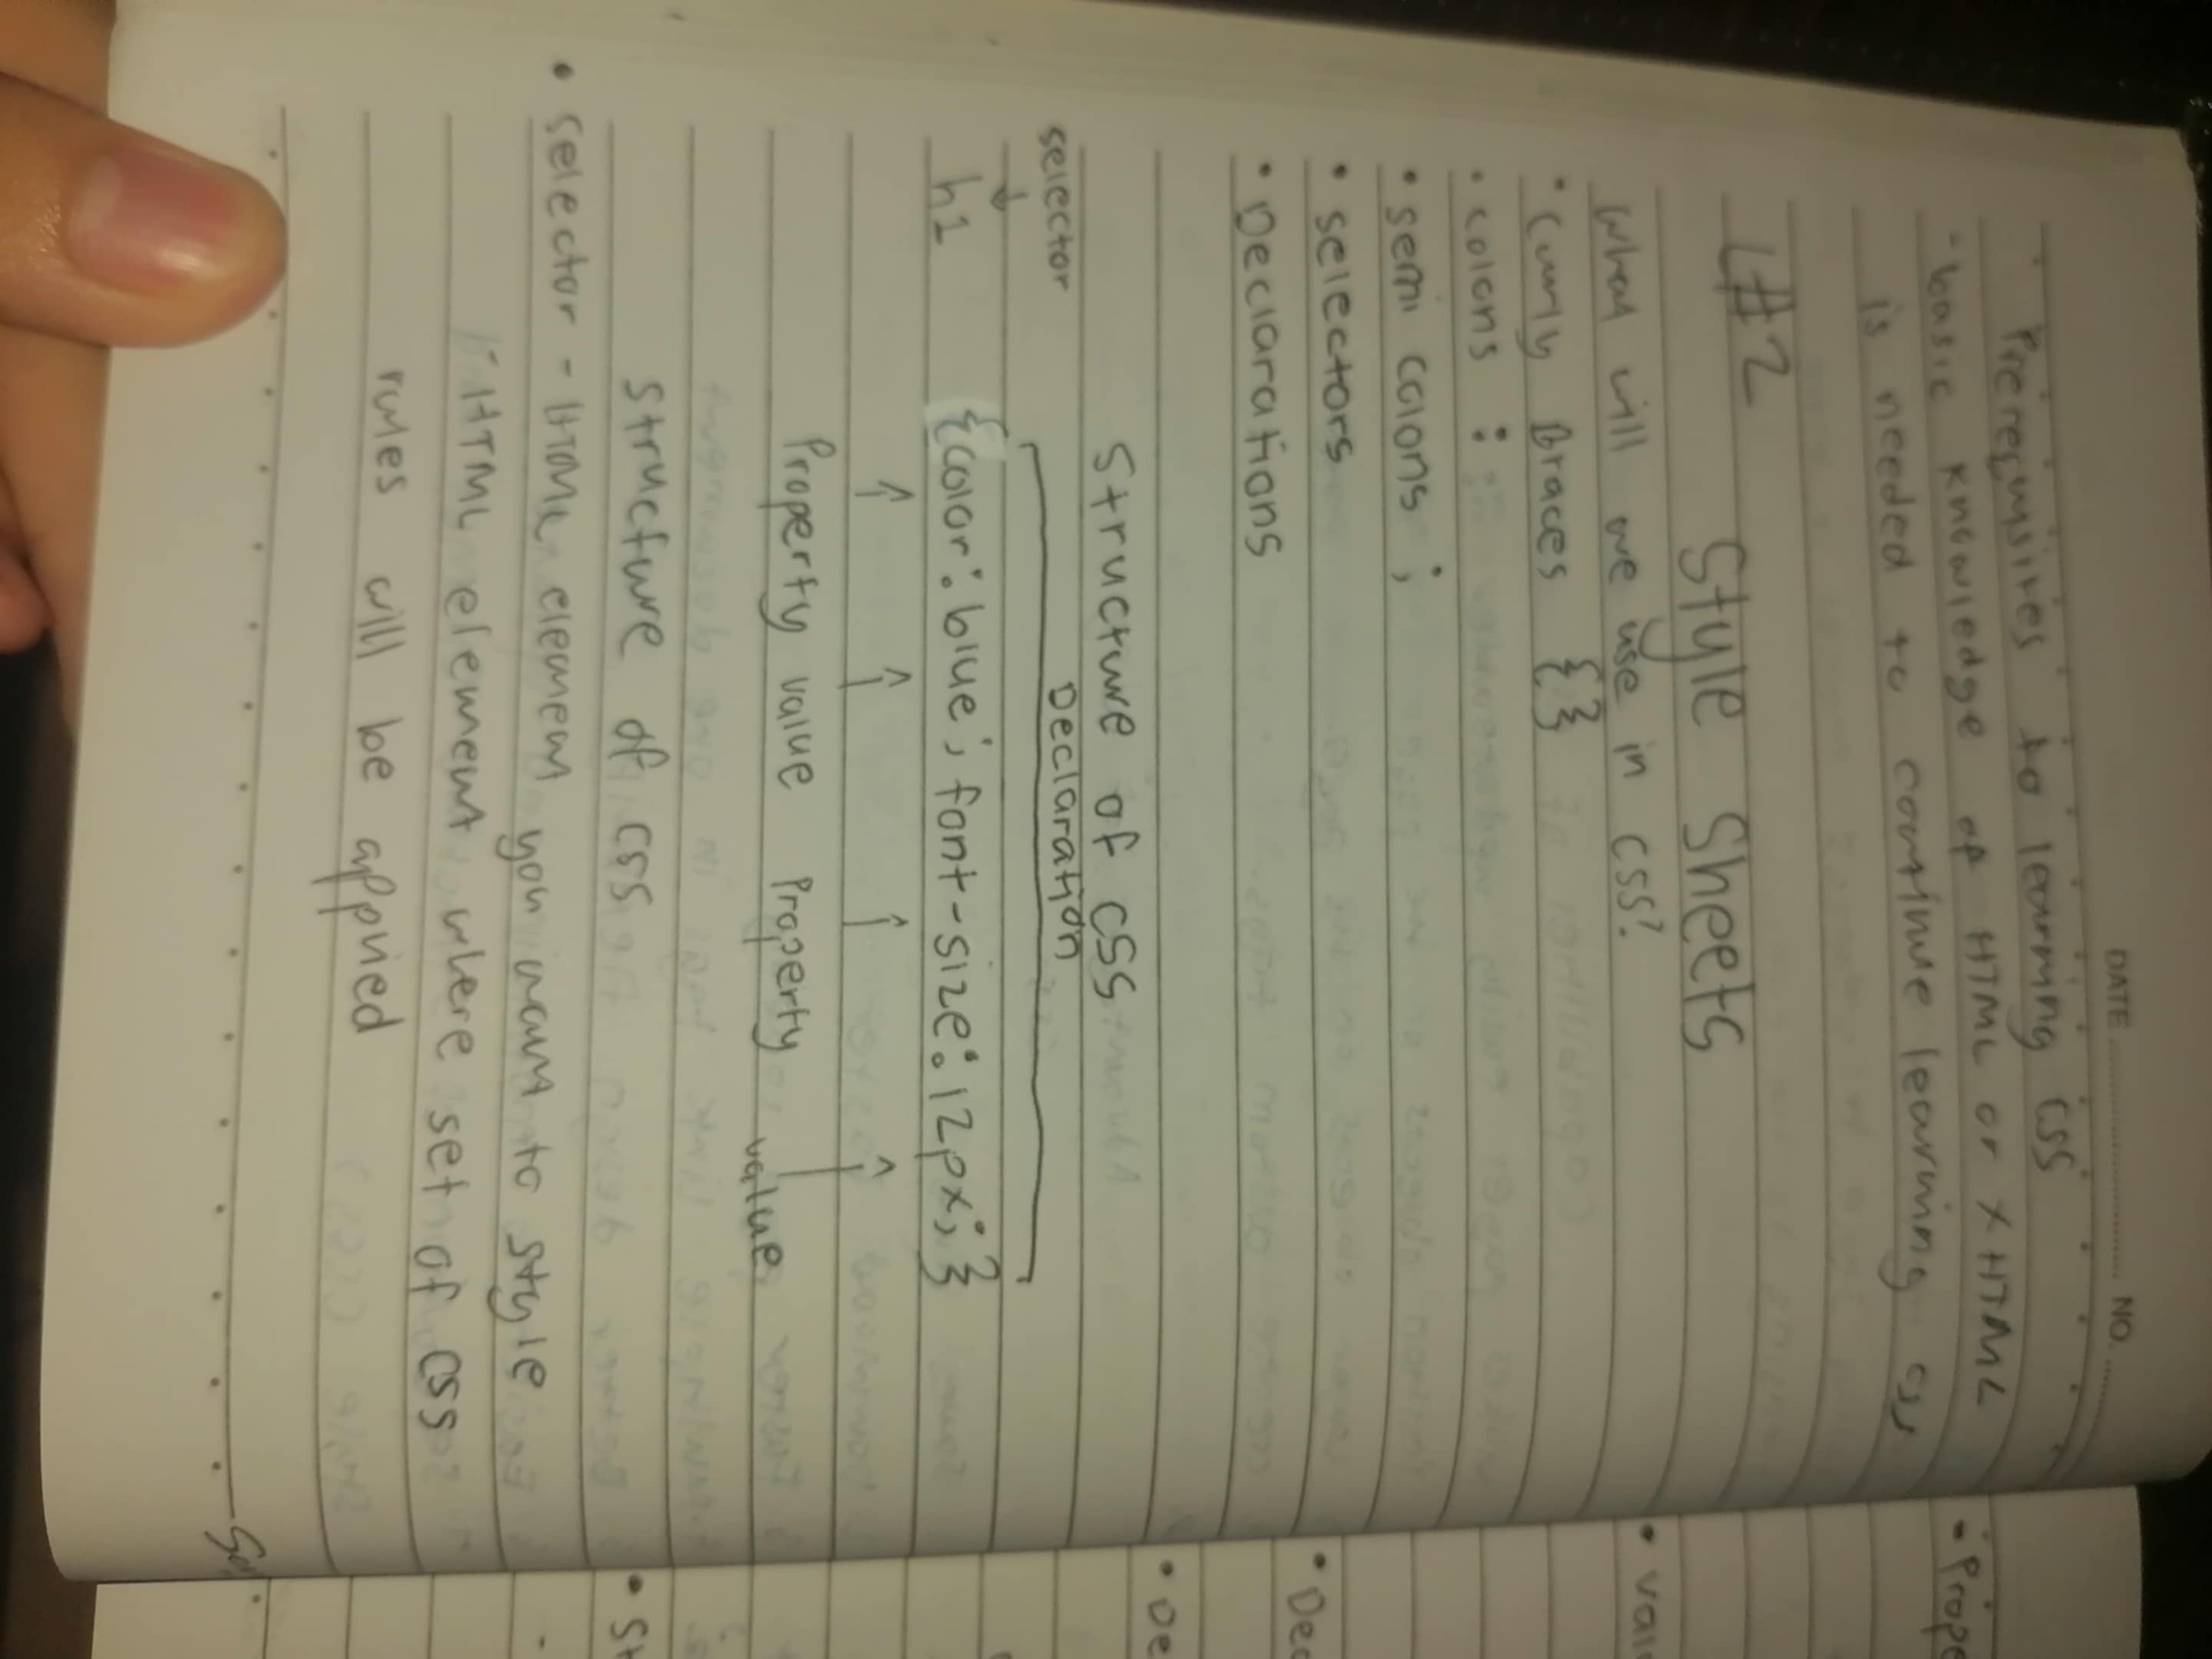 DATE NO.
Prerequisites to learning CSS
- basic knowledge of HTML or XHTML
is needed to continue learning css
L#2 Style Sheets
What will we use in CSS?
• Curly Braces { }
• colons :
• semi colons ;
• selectors
• Declarations
Structure of CSS
selector Declaration
h1 {color: blue; font-size: 12px;}
Property value Property value
Structure of CSS
• selector - HTML element you want to style
HTML element where set of CSS
rules will be applied
• Prope
• valu
• Dec
• De
• St